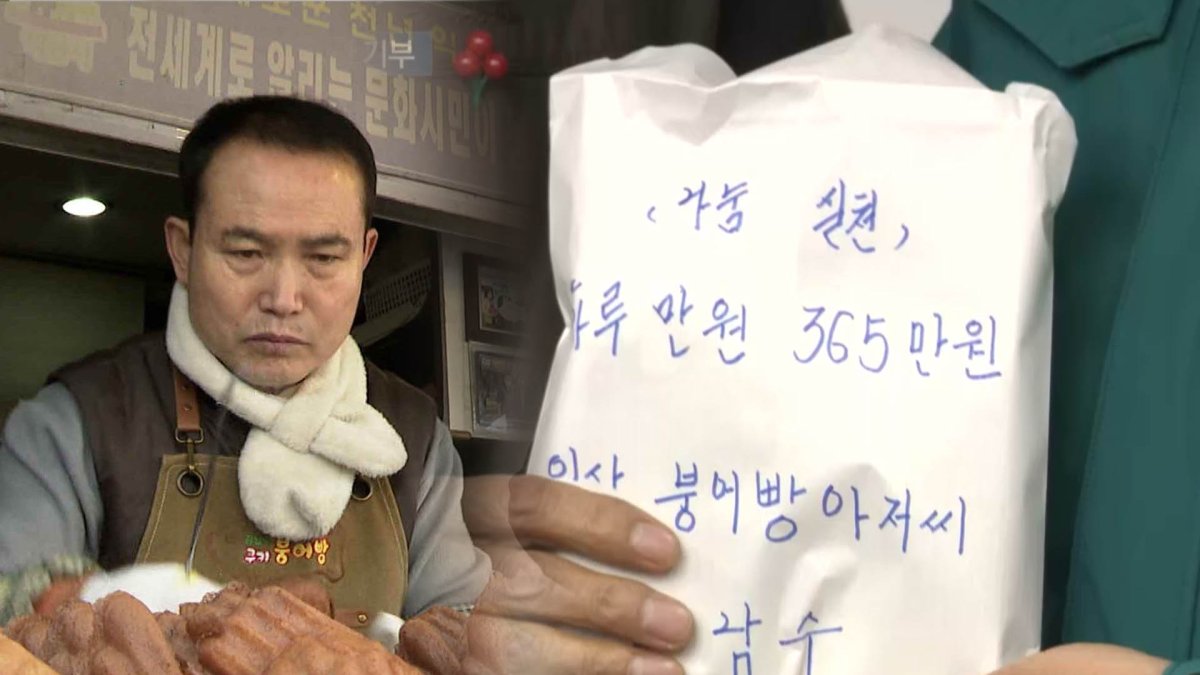 천년의
전세계로 알리는 문화시민이
기부
나눔 실천
하루 만원 365만원
붕어빵아저씨
남수
붕어빵